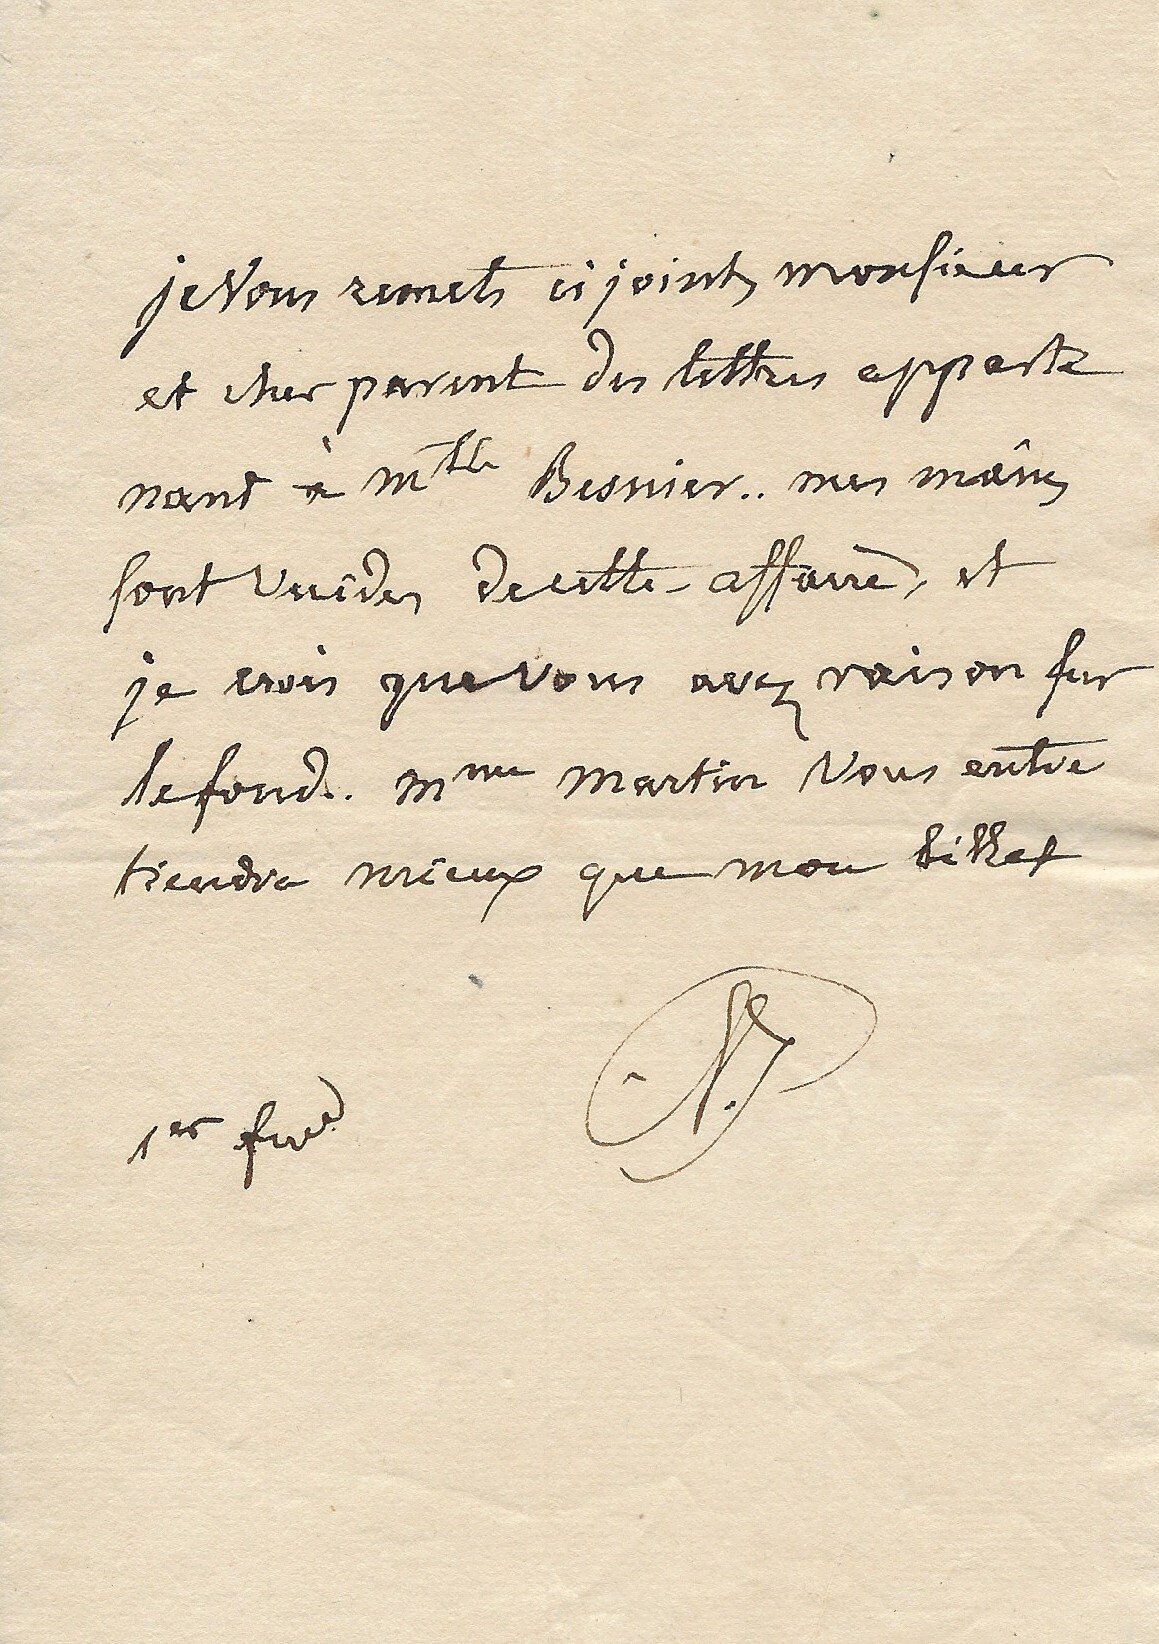 je Vous remets ci joints monsieur
et cher parent des lettres apparte
nant à mlle Besnier.. mes mains
sont Vuides de cette affaire, et
je crois que vous avez raison sur
le fond. mme martin Vous entre
tiendra mieux que mon billet
1er